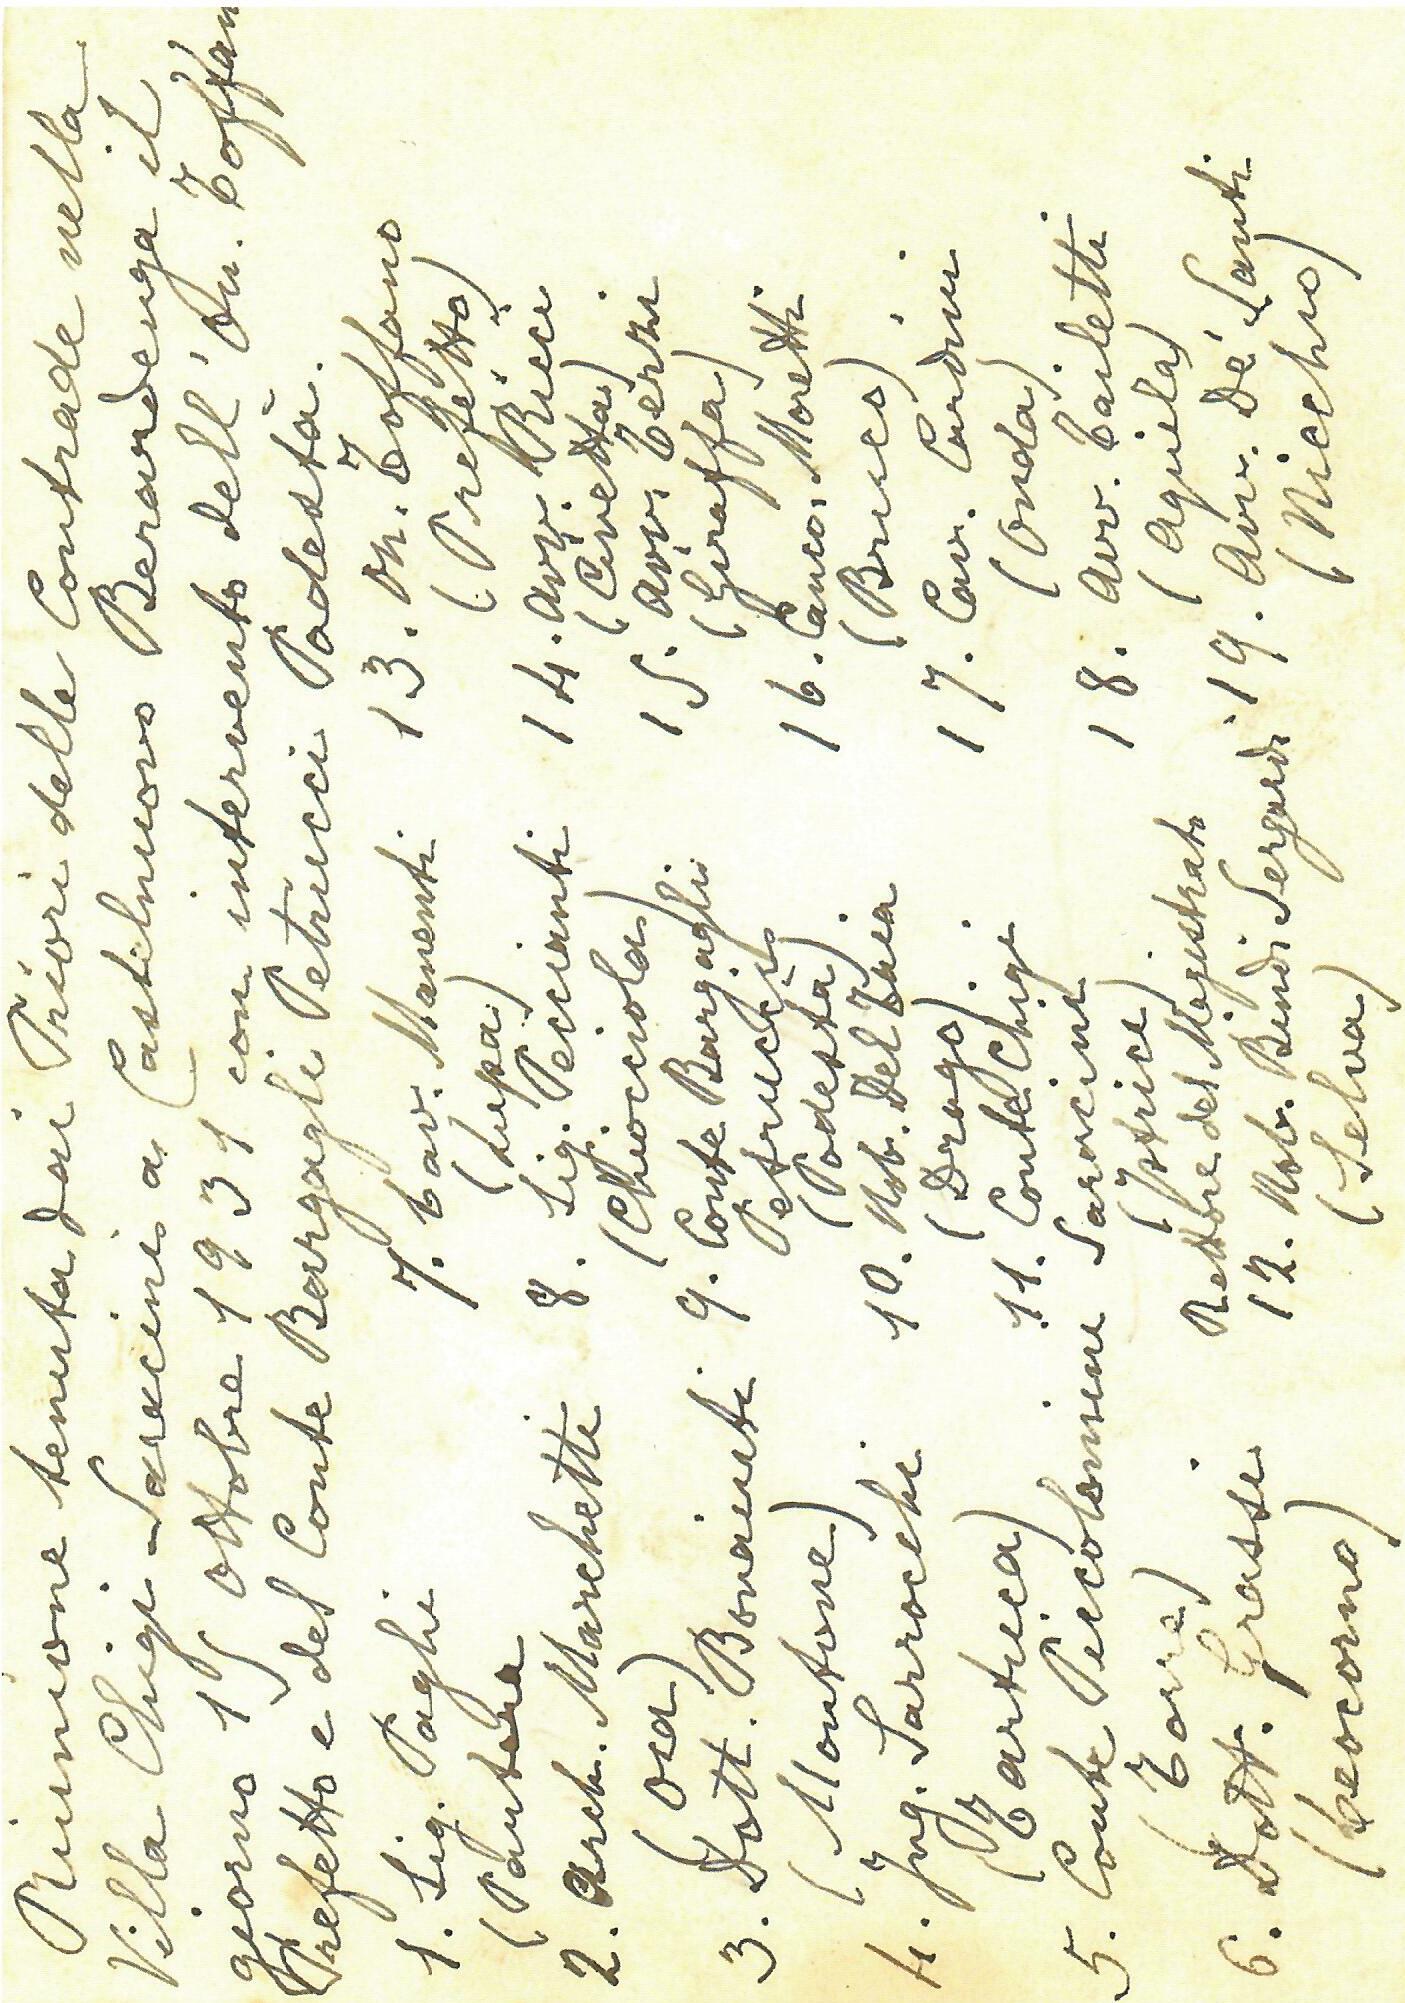 Riunione tenuta dai Priori delle Contrade nella
Villa Chigi-Saracini a Castelnuovo Berardenga il
giorno 15 ottobre 1931 con intervento dell'On. Toffano
Prefetto e del Conte Bargagli Petrucci Podestà.
1. Sig. Paghi
(Pantera
2. Arch. Marchetti
(Oca)
3. Dott. Bonaiuti
(Montone)
4. Ing. Sarrocchi
(Tartuca)
5. Conte Piccolomini
(Torre)
6. Dott. Grassi
(Leocorno)
7. Cav. Manenti
(Lupa)
8. Sig. Pecciianti
(Chiocciola)
9. Conte Bargagli
Petrucci
(Podestà)
10. Nob. Del Taia
(Drago)
11. Conte Chigi
Saracini
(Istrice)
Rettore del Magistrato
12. Nob. Bindi Sergardi
(Selva)
13. On. Toffano
(Prefetto)
14. Avv. Ricci
(Civetta)
15. Avv. Terzi
(Giraffa)
16. Canco. Moretti
(Bruco)
17. Cav. Cardini
(Onda)
18. Avv. Bailetti
(Aquila)
19. Avv. De' Santi
(Nicchio)